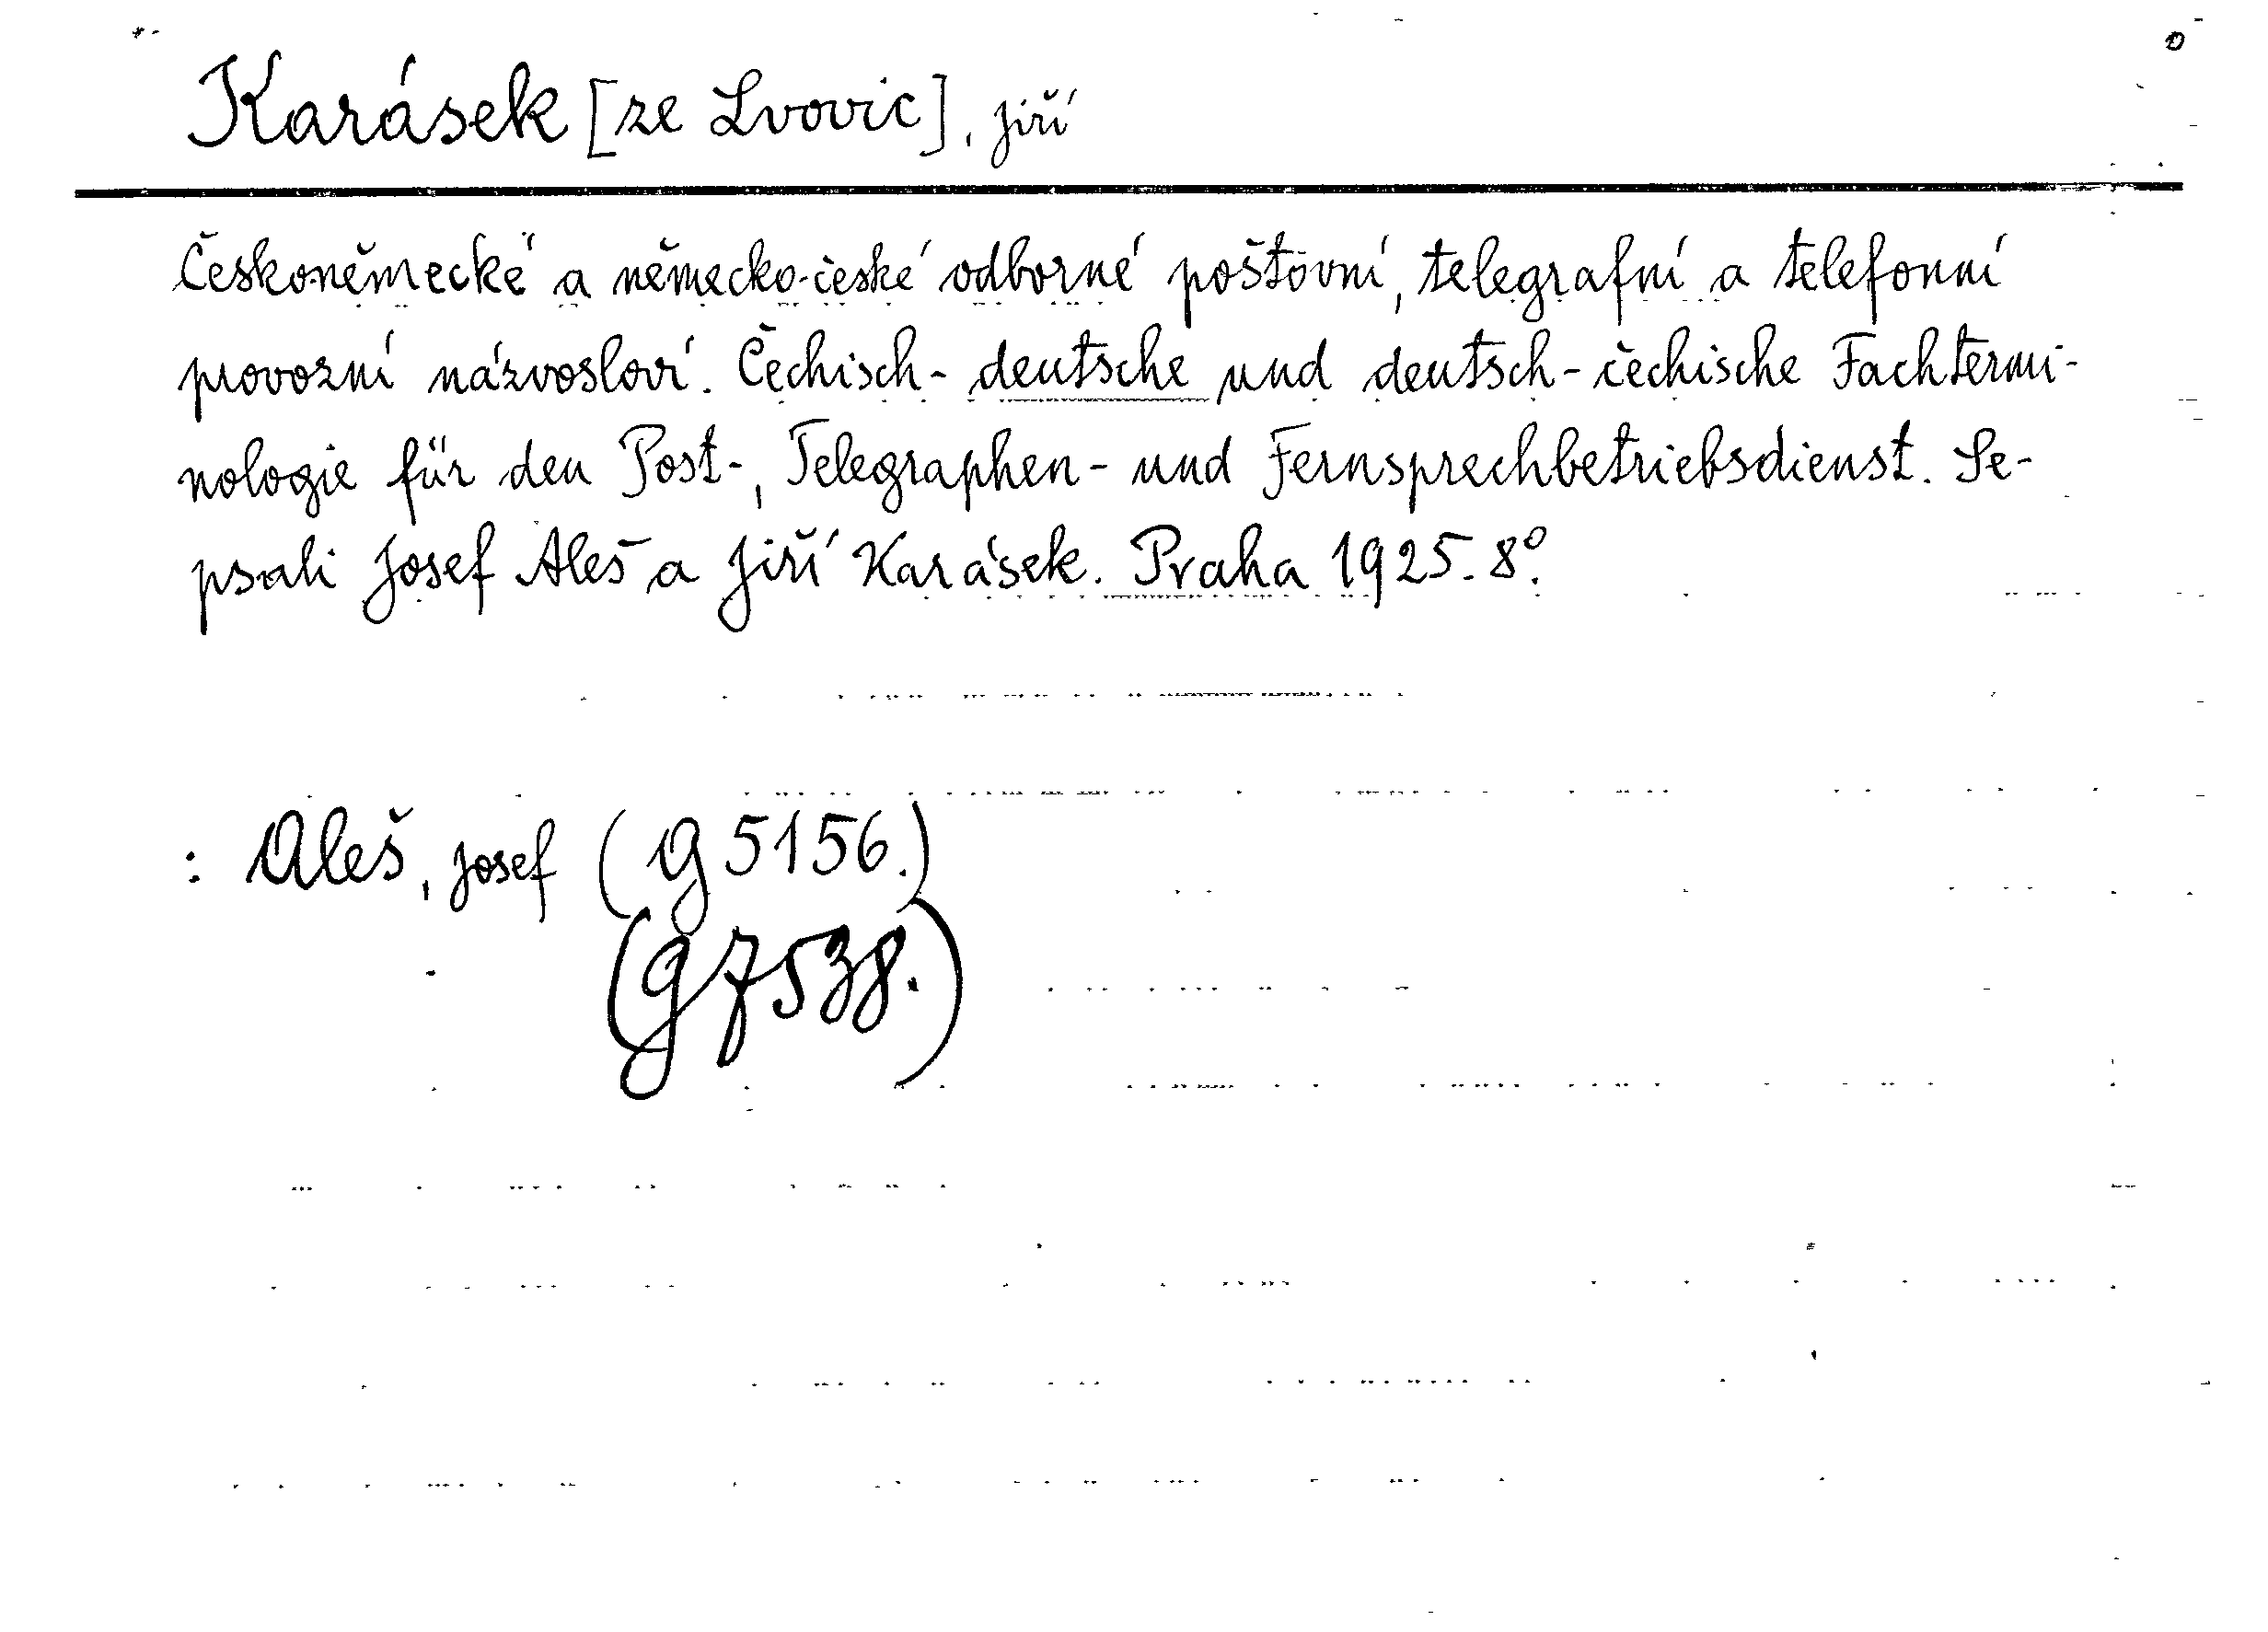 Karásek [ze Lvovic], Jiří
Českoněmecké a německo-české odborné poštovní, telegrafní a telefonní
provozní názvosloví. Čechisch-deutsche und deutsch-čechische Fachtermi-
nologie für den Post-, Telegraphen- und Fernsprechbetriebsdienst. Se-
psali Josef Aleš a Jiří Karásek. Praha 1925. 8°.
: Aleš, Josef (g 5156.)
(g 7538.)